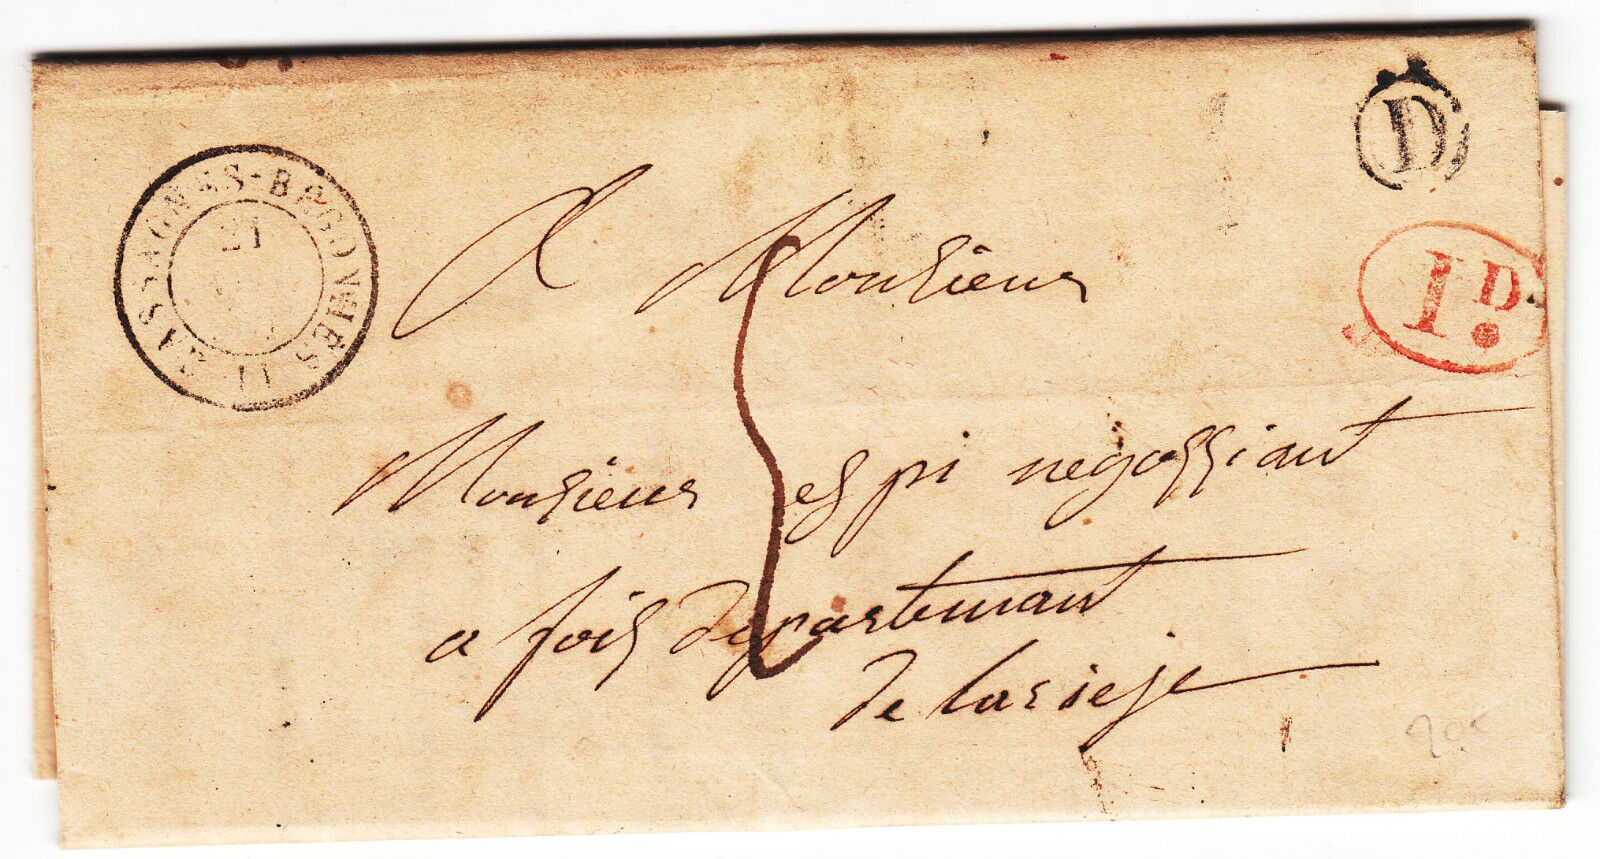 CASSAGNES-BEGONHÈS (11)
21
D
1D.
A Monsieur
Monsieur espi negossiant
a foix departemant
de larieje
5
20€